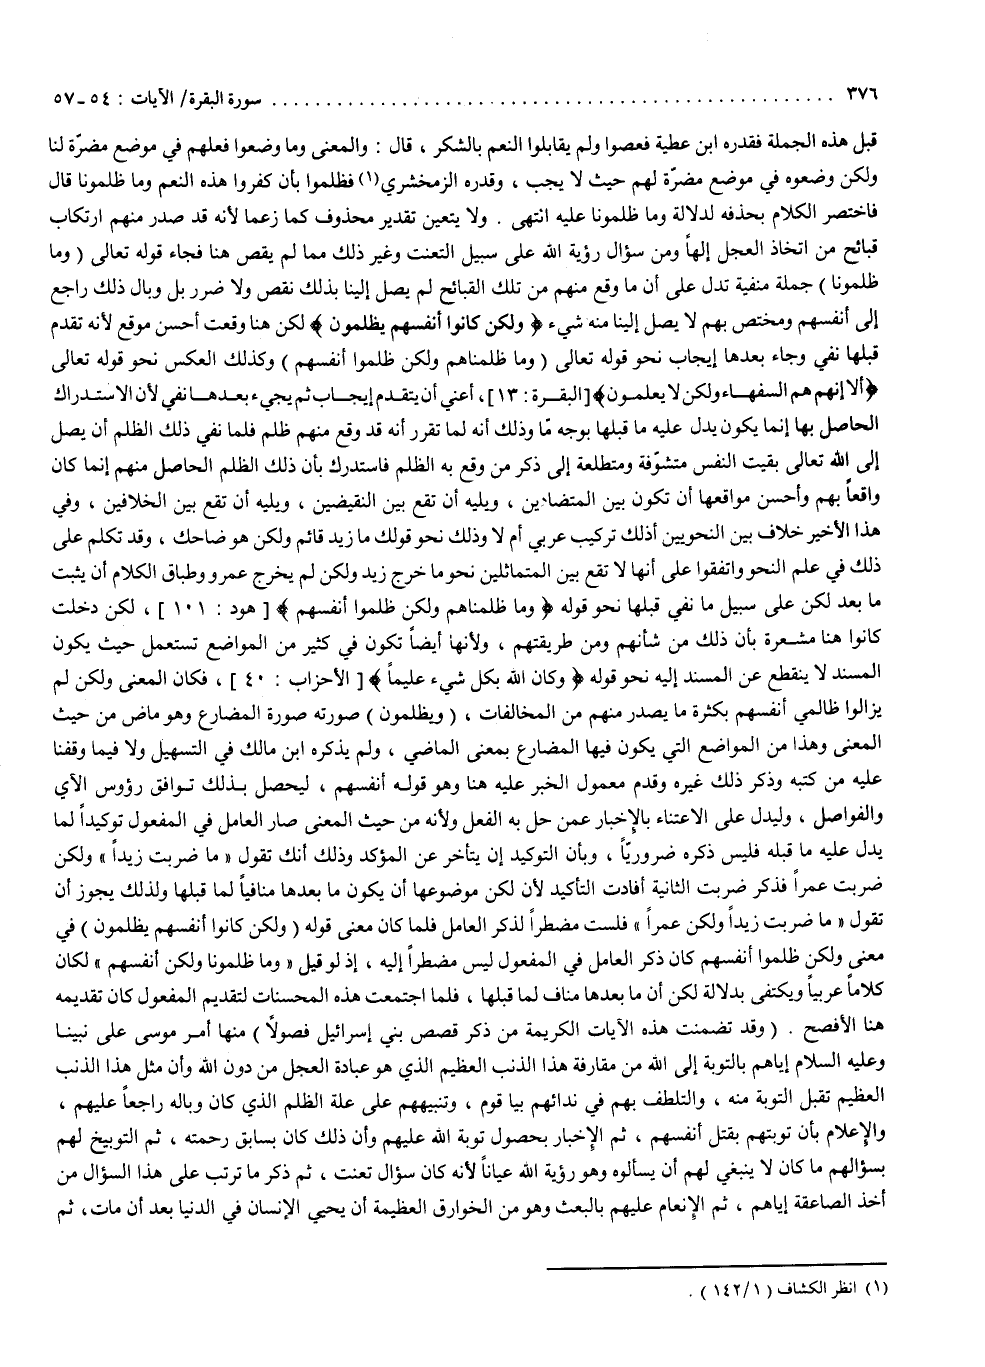 ٣٧٦ .................................................... سورة البقرة/ الآيات : ٥٤ـ٥٧
قبل هذه الجملة فقدره ابن عطية فعصوا ولم يقابلوا النعم بالشكر ، قال : والمعنى وما وضعوا فعلهم في موضع مضرّة لنا
ولكن وضعوه في موضع مضرّة لهم حيث لا يجب ، وقدره الزمخشري(١) فظلموا بأن كفروا هذه النعم وما ظلمونا قال
فاختصر الكلام بحذفه لدلالة وما ظلمونا عليه انتهى . ولا يتعين تقدير محذوف كما زعما لأنه قد صدر منهم ارتكاب
قبائح من اتخاذ العجل إلهاً ومن سؤال رؤية الله على سبيل التعنت وغير ذلك مما لم يقص هنا فجاء قوله تعالى ( وما
ظلمونا ) جملة منفية تدل على أن ما وقع منهم من تلك القبائح لم يصل إلينا بذلك نقص ولا ضرر بل وبال ذلك راجع
إلى أنفسهم ومختص بهم لا يصل إلينا منه شيء ﴿ ولكن كانوا أنفسهم يظلمون ﴾ لكن هنا وقعت أحسن موقع لأنه تقدم
قبلها نفي وجاء بعدها إيجاب نحو قوله تعالى ( وما ظلمناهم ولكن ظلموا أنفسهم ) وكذلك العكس نحو قوله تعالى
﴿ألا إنهم هم السفهاء ولكن لا يعلمون﴾[البقرة : ١٣]، أعني أن يتقدم إيجاب ثم يجيء بعدها نفي لأن الاستدراك
الحاصل بها إنما يكون يدل عليه ما قبلها بوجه مّا وذلك أنه لما تقرر أنه قد وقع منهم ظلم فلما نفي ذلك الظلم أن يصل
إلى الله تعالى بقيت النفس متشوّفة ومتطلعة إلى ذكر من وقع به الظلم فاستدرك بأن ذلك الظلم الحاصل منهم إنما كان
واقعاً بهم وأحسن مواقعها أن تكون بين المتضادين ، ويليه أن تقع بين النقيضين ، ويليه أن تقع بين الخلافين ، وفي
هذا الأخير خلاف بين النحويين أذلك تركيب عربي أم لا وذلك نحو قولك ما زيد قائم ولكن هو ضاحك ، وقد تكلم على
ذلك في علم النحو واتفقوا على أنها لا تقع بين المتماثلين نحو ما خرج زيد ولكن لم يخرج عمرو وطباق الكلام أن يثبت
ما بعد لكن على سبيل ما نفي قبلها نحو قوله ﴿ وما ظلمناهم ولكن ظلموا أنفسهم ﴾ [ هود : ١٠١ ] ، لكن دخلت
كانوا هنا مشعرة بأن ذلك من شأنهم ومن طريقتهم ، ولأنها أيضاً تكون في كثير من المواضع تستعمل حيث يكون
المسند لا ينقطع عن المسند إليه نحو قوله ﴿ وكان الله بكل شيء عليماً ﴾ [ الأحزاب : ٤٠ ] ، فكان المعنى ولكن لم
يزالوا ظالمي أنفسهم بكثرة ما يصدر منهم من المخالفات ، ( ويظلمون ) صورته صورة المضارع وهو ماض من حيث
المعنى وهذا من المواضع التي يكون فيها المضارع بمعنى الماضي ، ولم يذكره ابن مالك في التسهيل ولا فيما وقفنا
عليه من كتبه وذكر ذلك غيره وقدم معمول الخبر عليه هنا وهو قوله أنفسهم ، ليحصل بذلك توافق رؤوس الآي
والفواصل ، وليدل على الاعتناء بالإخبار عمن حل به الفعل ولأنه من حيث المعنى صار العامل في المفعول توكيداً لما
يدل عليه ما قبله فليس ذكره ضروريّاً ، وبأن التوكيد إن يتأخر عن المؤكد وذلك أنك تقول « ما ضربت زيداً » ولكن
ضربت عمراً فذكر ضربت الثانية أفادت التأكيد لأن لكن موضوعها أن يكون ما بعدها منافياً لما قبلها ولذلك يجوز أن
تقول « ما ضربت زيداً ولكن عمراً » فلست مضطراً لذكر العامل فلما كان معنى قوله ( ولكن كانوا أنفسهم يظلمون ) في
معنى ولكن ظلموا أنفسهم كان ذكر العامل في المفعول ليس مضطراً إليه ، إذ لو قيل « وما ظلمونا ولكن أنفسهم » لكان
كلاماً عربياً ويكتفى بدلالة لكن أن ما بعدها مناف لما قبلها ، فلما اجتمعت هذه المحسنات لتقديم المفعول كان تقديمه
هنا الأفصح . ( وقد تضمنت هذه الآيات الكريمة من ذكر قصص بني إسرائيل فصولاً ) منها أمر موسى على نبينا
وعليه السلام إياهم بالتوبة إلى الله من مقارفة هذا الذنب العظيم الذي هو عبادة العجل من دون الله وأن مثل هذا الذنب
العظيم تقبل التوبة منه ، والتلطف بهم في ندائهم بيا قوم ، وتنبيههم على علة الظلم الذي كان وباله راجعاً عليهم ،
والإعلام بأن توبتهم بقتل أنفسهم ، ثم الإخبار بحصول توبة الله عليهم وأن ذلك كان بسابق رحمته ، ثم التوبيخ لهم
بسؤالهم ما كان لا ينبغي لهم أن يسألوه وهو رؤية الله عياناً لأنه كان سؤال تعنت ، ثم ذكر ما ترتب على هذا السؤال من
أخذ الصاعقة إياهم ، ثم الإنعام عليهم بالبعث وهو من الخوارق العظيمة أن يحيي الإنسان في الدنيا بعد أن مات، ثم
(١) انظر الكشاف ( ١٤٢/١ ) .